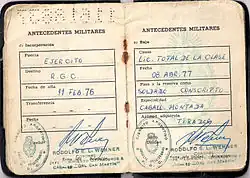 ANTECEDENTES MILITARES
a) Incorporación
Fuerza
EJERCITO
Destino
R.G.C.
Fecha de alta
11 FEB. 76
Transferencia
RODOLFO E. L. WEHNER
ANTECEDENTES MILITARES
b) Baja
Causa
LIC. TOTAL DE LA CLASE
Fecha
08 ABR. 77
Pasa a la reserva como
SOLDADO CONSCRIPTO
Especialidad
CABALL. MONTADA
Aptitud adquirida
TIRADOR
RODOLFO E. L. WEHNER